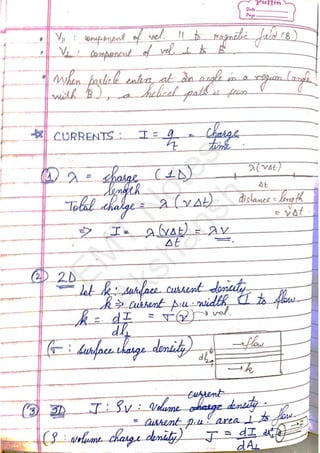 V∥ : component of vel. ∥ to magnetic field (B)
V⊥ : component of vel ⊥ to B
• When particle enters at an angle in a region (angle
with B), a helical path is
CURRENTS : I = q/t = Charge/time
① λ = charge/length (1D)
λ(vΔt)
Δt
Total charge = λ(vΔt)
distance = length
= vΔt
⇒ I = λ(vΔt)/Δt = λv
② 2D
let k : surface current density
k ⇒ current p.u. width ⊥ to flow
k = dI/dl⊥ = σ(v) → vol.
(σ : surface charge density)
dl⊥
→ flow
→ k
③ 3D J : ρv : Volume current density.
= current p.u. area ⊥ to flow.
(ρ : volume charge density) J = dI/dA⊥